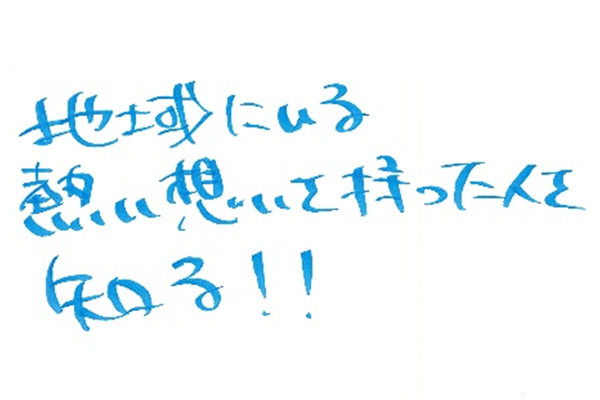 地域にいる
熱い想いを持った人を
知る!!